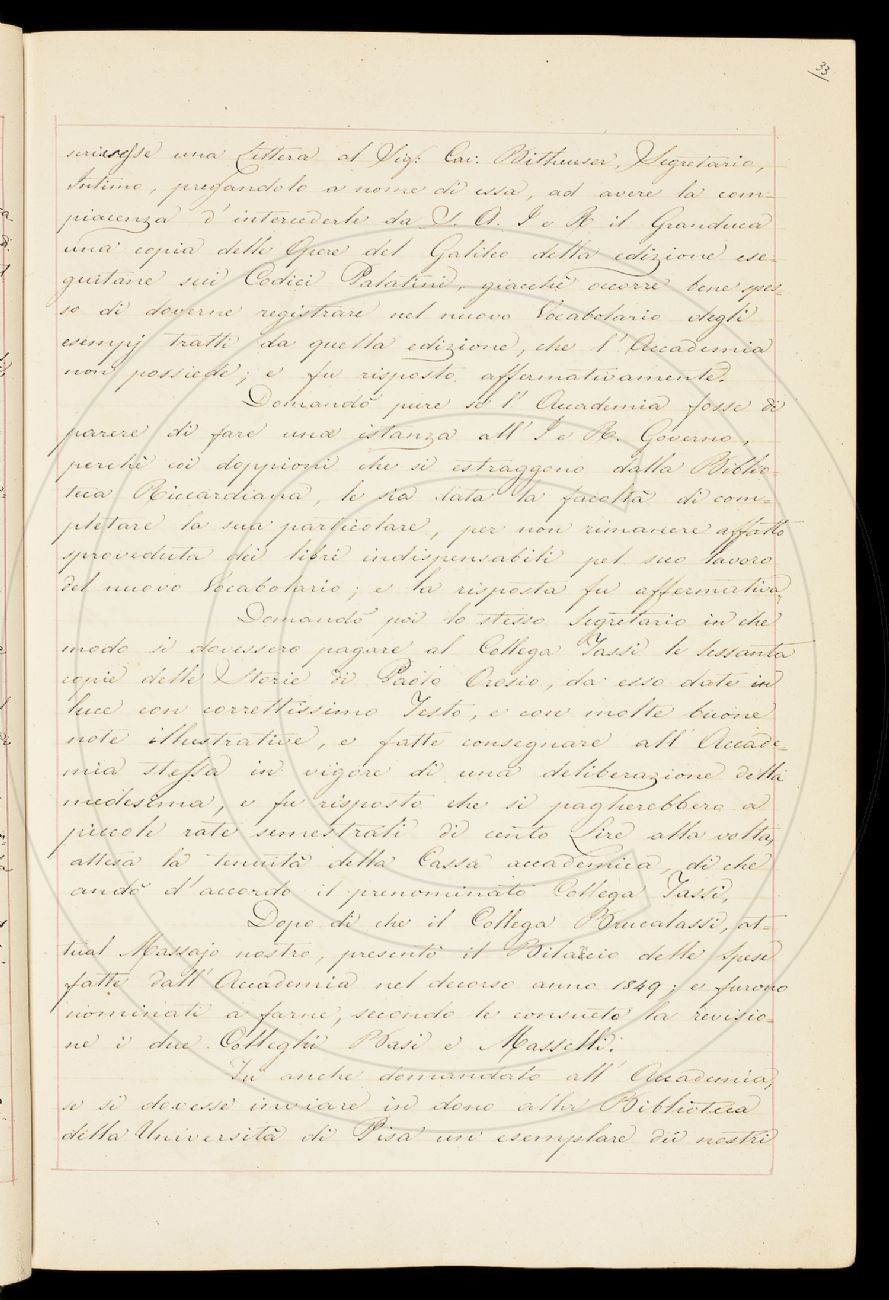 33
scrivesse una Lettera al Sig: Cav: Bitheuser, Segretario,
Intimo, pregandolo a nome di essa, ad avere la com-
piacenza d'intercederle da S. A. I e R il Granduca
una copia delle Opere del Galileo della edizione ese-
guitane sui Codici Palatini, giacchè occorre bene spes-
so di doverne registrare nel nuovo Vocabolario degli
esempj tratti da quella edizione, che l'Accademia
non possiede; e fu risposto affermativamente.
Domandò pure se l'Accademia fosse di
parere di fare una istanza all'I e R. Governo,
perchè coi doppioni che si estraggono dalla Biblio-
teca Riccardiana, le sia data la facoltà di com-
pletare la sua particolare, per non rimanere affatto
sproveduta dei libri indispensabili pel suo lavoro
del nuovo Vocabolario; e la risposta fu affermativa,
Domandò poi lo stesso Segretario in che
modo si dovessero pagare al Collega Tassi le sessanta
copie delle Storie di Paolo Orosio, da esso date in
luce con correttissimo Testo, e con molte buone
note illustrative, e fatte consegnare all'Accade-
mia stessa in vigore di una deliberazione della
medesima, e fu risposto che si pagherebbero a
piccole rate semestrali di cento Lire alla volta,
attesa la tenuità della Cassa accademica, di che
andò d'accordo il prenominato Collega Tassi,
Dopo di che il Collega Brucalassi, at-
tual Massajo nostro, presentò il Bilancio delle spese
fatte dall'Accademia nel decorso anno 1849; e furono
nominati a farne, secondo le consueto la revisio-
ne i due Colleghi Basi e Masselli.
Fu anche domandato all'Accademia,
se si dovesse inviare in dono alla Biblioteca
della Università di Pisa un esemplare dei nostri